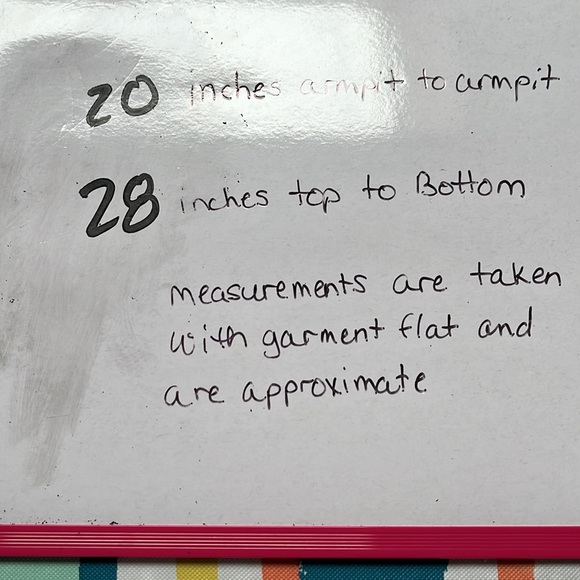 20 inches armpit to armpit
28 inches top to Bottom
measurements are taken
with garment flat and
are approximate